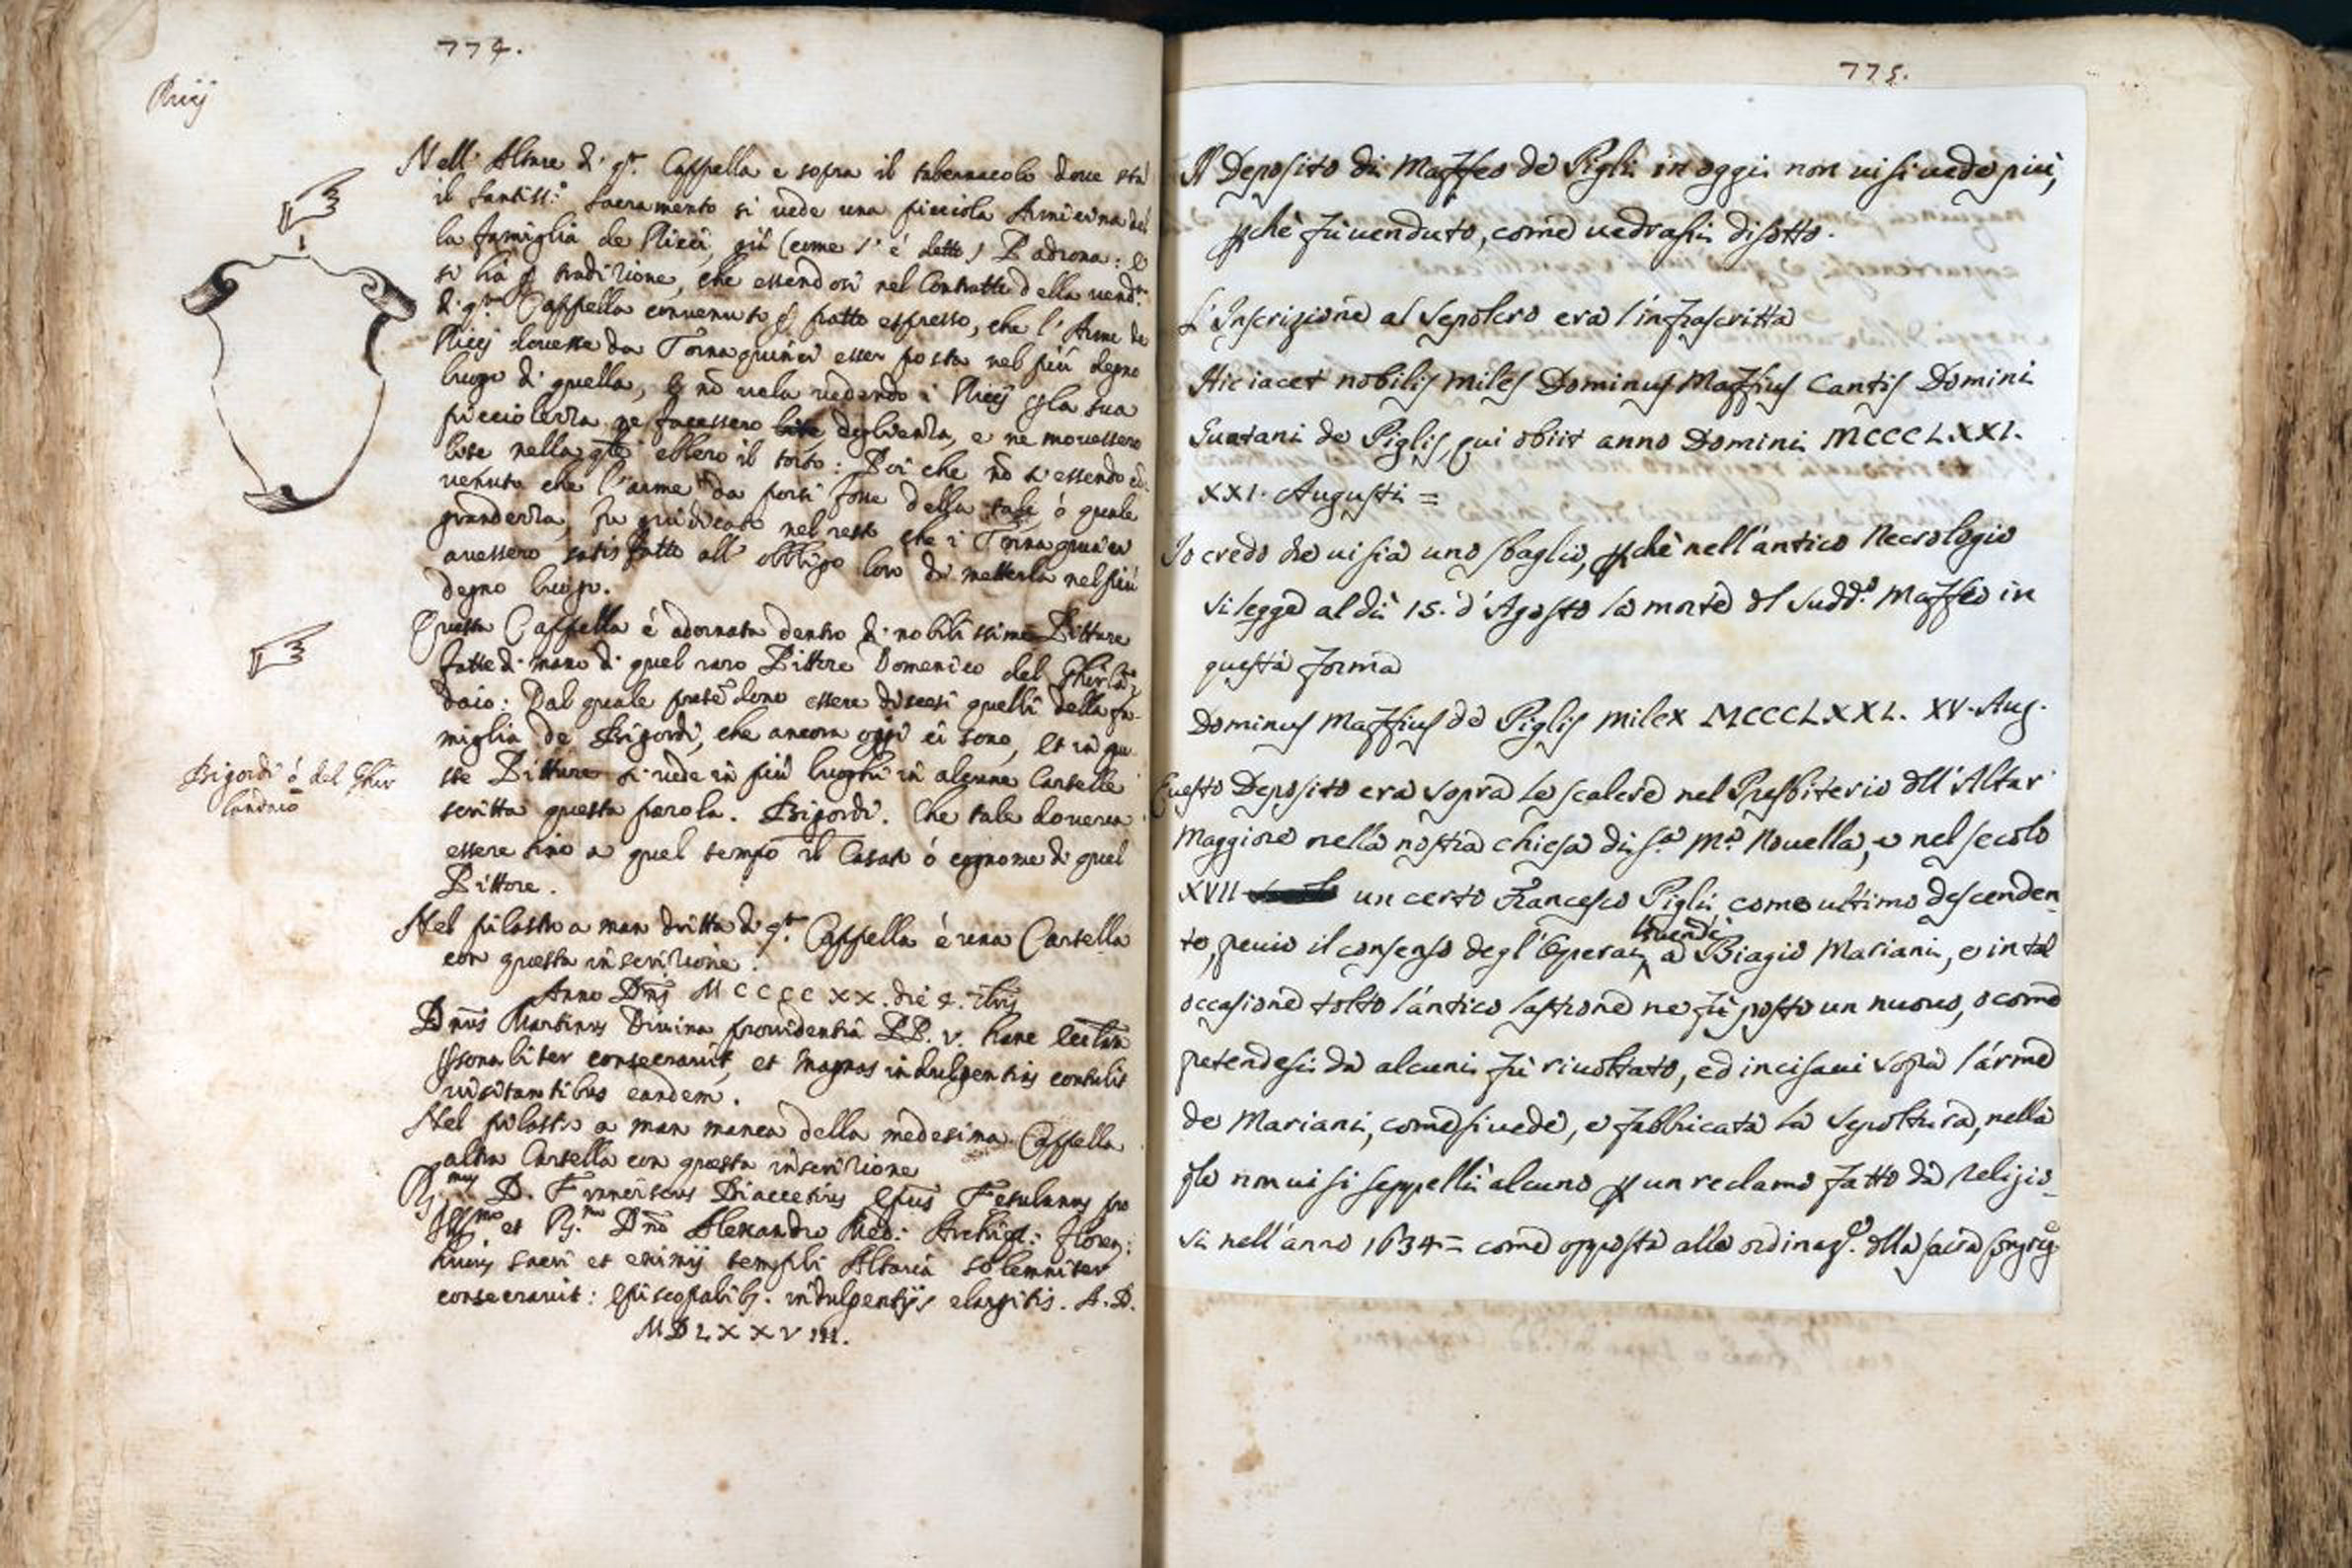 774.
Ricij
Nell' Altare di q.ta Cappella e sopra il tabernacolo doue stà
il santiss.o Sacramento si uede una picciola Armicina del
la famiglia de Ricci, già (come s' è detto) Padrona: e
si hà p tradizione, che essendosi nel Contratto della uend.ta
di q.ta Cappella conuenuto p patto espresso, che l' Arme de
Ricij douesse da Tornaquinci esser posta nel più degno
luogo di quella, e nō vela uedendo i Ricij p la sua
picciolezza ne facessero doglienza, e ne mouessero
lite nella qle ebbero il torto: Poi che nō s' essendo cō
uenuto che l'arme da porsi fosse della tale ò quale
grandezza, fu giudicato nel resto che i Tornaquinci
auessero satisfatto all' obbligo loro di metterla nel più
degno luogo.
Questa Cappella è adornata dentro di nobilissime Pitture
fatte di mano di quel raro Pittore Domenico del Ghirlā
daio: Dal quale pretēdono essere discesi quelli della fa-
miglia de Bigordi, che ancora oggi ci sono, et in que
ste Pitture si uede in più luoghi in alcune Cartelle
scritta questa parola. Bigordi. Che tale doueua
essere sino a quel tempo il Casato ò cognome di quel
Pittore.
Bigordi ò del Ghir
landaio
Nel pilastro a man dritta di q.ta Cappella è una Cartella
con questa inscrizione.
Anno Dnī MCCCCXX. die 7.bris
Dnus Martinus Diuina prouidentia PP. V. hanc eccliam
psonaliter consecrauit, et magnas indulgentias contulit
uisitantibus eandem.
Nel pilastro a man manca della medesima Cappella
altra Cartella con questa inscrizione
R.mus D. Franciscus Diaccetius Epus Fesulanus pro
Ill.mo et R.mo Dno Alexandro Med: Archiep: Floren:
huius sacri et eximij templi Altaria solemniter
consecrauit: Episcopalibq. indulgentijs elargitis. A.D.
MDLXXVIII.
775.
Il Deposito di Maffeo de Pigli in oggi non ui si uede più,
pchè fù uenduto, come uedrassi disotto.
L'Inscrizione al Sepolcro era l'infrascritta
Hic iacet nobilis miles Dominus Maffius Cantis Domini
de Piglis, qui obiit anno Domini MCCCLXXI.
XXI. Augusti =
Io credo che ui sia uno sbaglio, pchè nell'antico Necrologio
si legge al dì 15. d'Agosto la morte dl sudd.o Maffeo in
questa forma
Dominus Maffius de Piglis milex MCCCLXXI. XV. Aug.
Questo Deposito era sopra le scalere nel Presbiterio dll'Altar
Maggiore nella nostra chiesa di S.a M.a Nouella, e nel secolo
XVII un certo Francesco Pigli, come ultimo descenden
te, peuio il consenso degl'Operai, lo uendè a Biagio Mariani, e in tal
occasione tolto l'antico lastrone ne fù posto un nuouo, o come
petendesi da alcuni fù riuoltato, ed incisaui sopra l'arme
de Mariani, come si uede, e fabbricata la sepoltura, nella
qle non ui si seppellì alcuno p un reclamo fatto da religio_
si nell'anno 1634 = come opposta alle ordinaz.e dlla sacra Congreg.